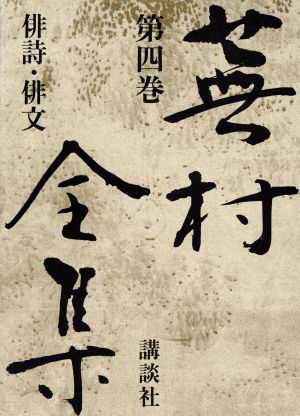 蕪村
全集
第四巻
俳詩・俳文
講談社